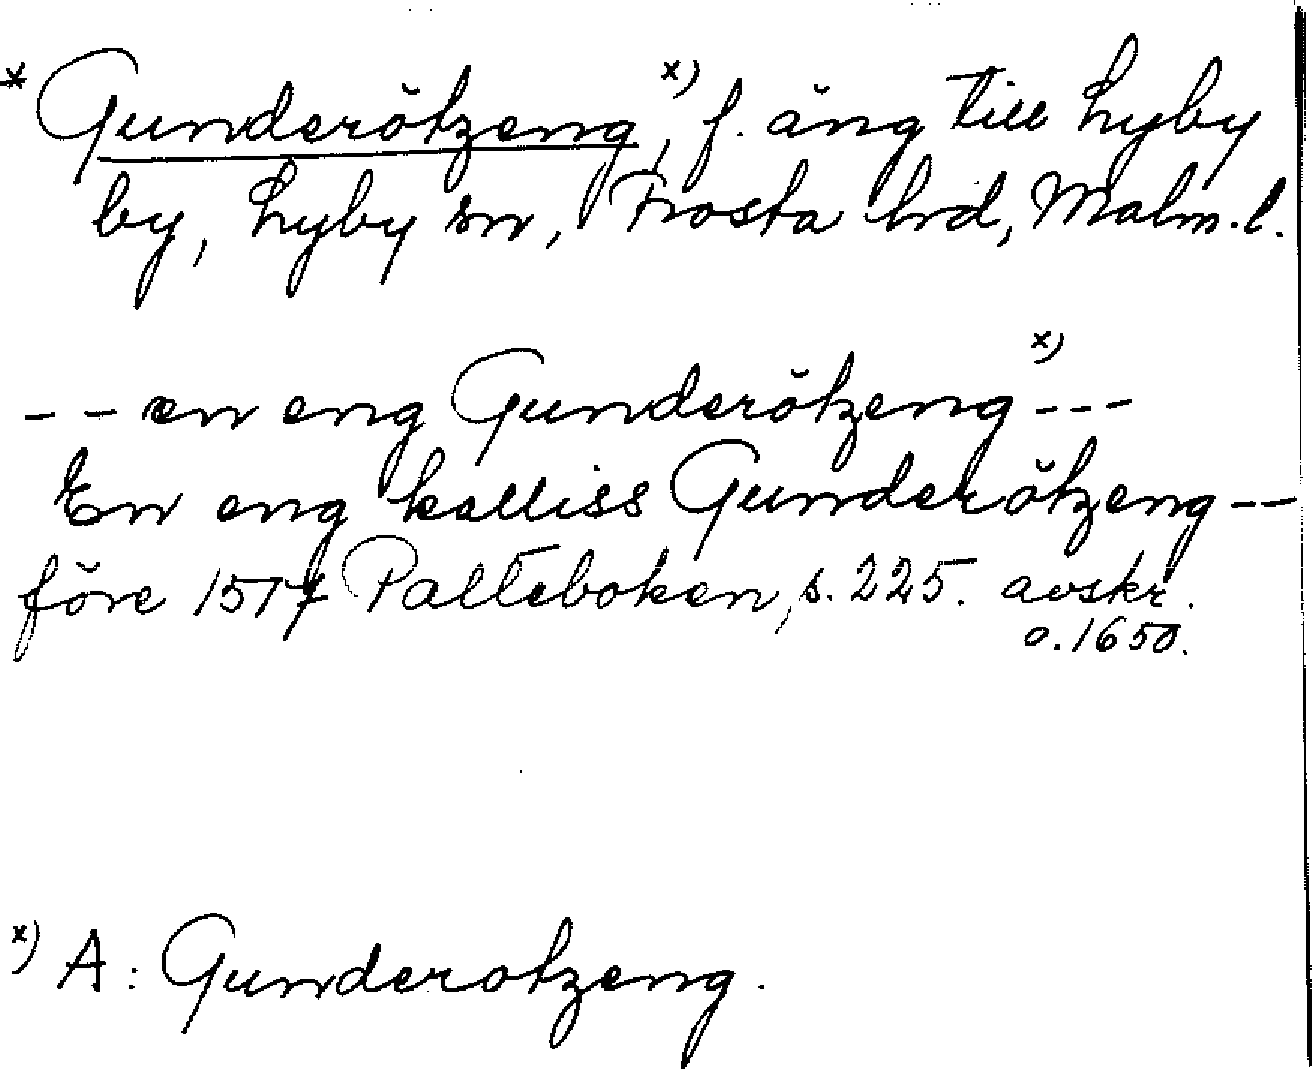 * Gunderötzeng, x) f. äng till Hyby
by, Hyby sn, Frosta hrd, Malm. l.
-- en eng Gunderötzeng x) ---
En eng kalliss Gunderötzeng --
före 1517 Palteboken, s. 225. avskr.
o. 1650.
x) A: Gunderotzeng.